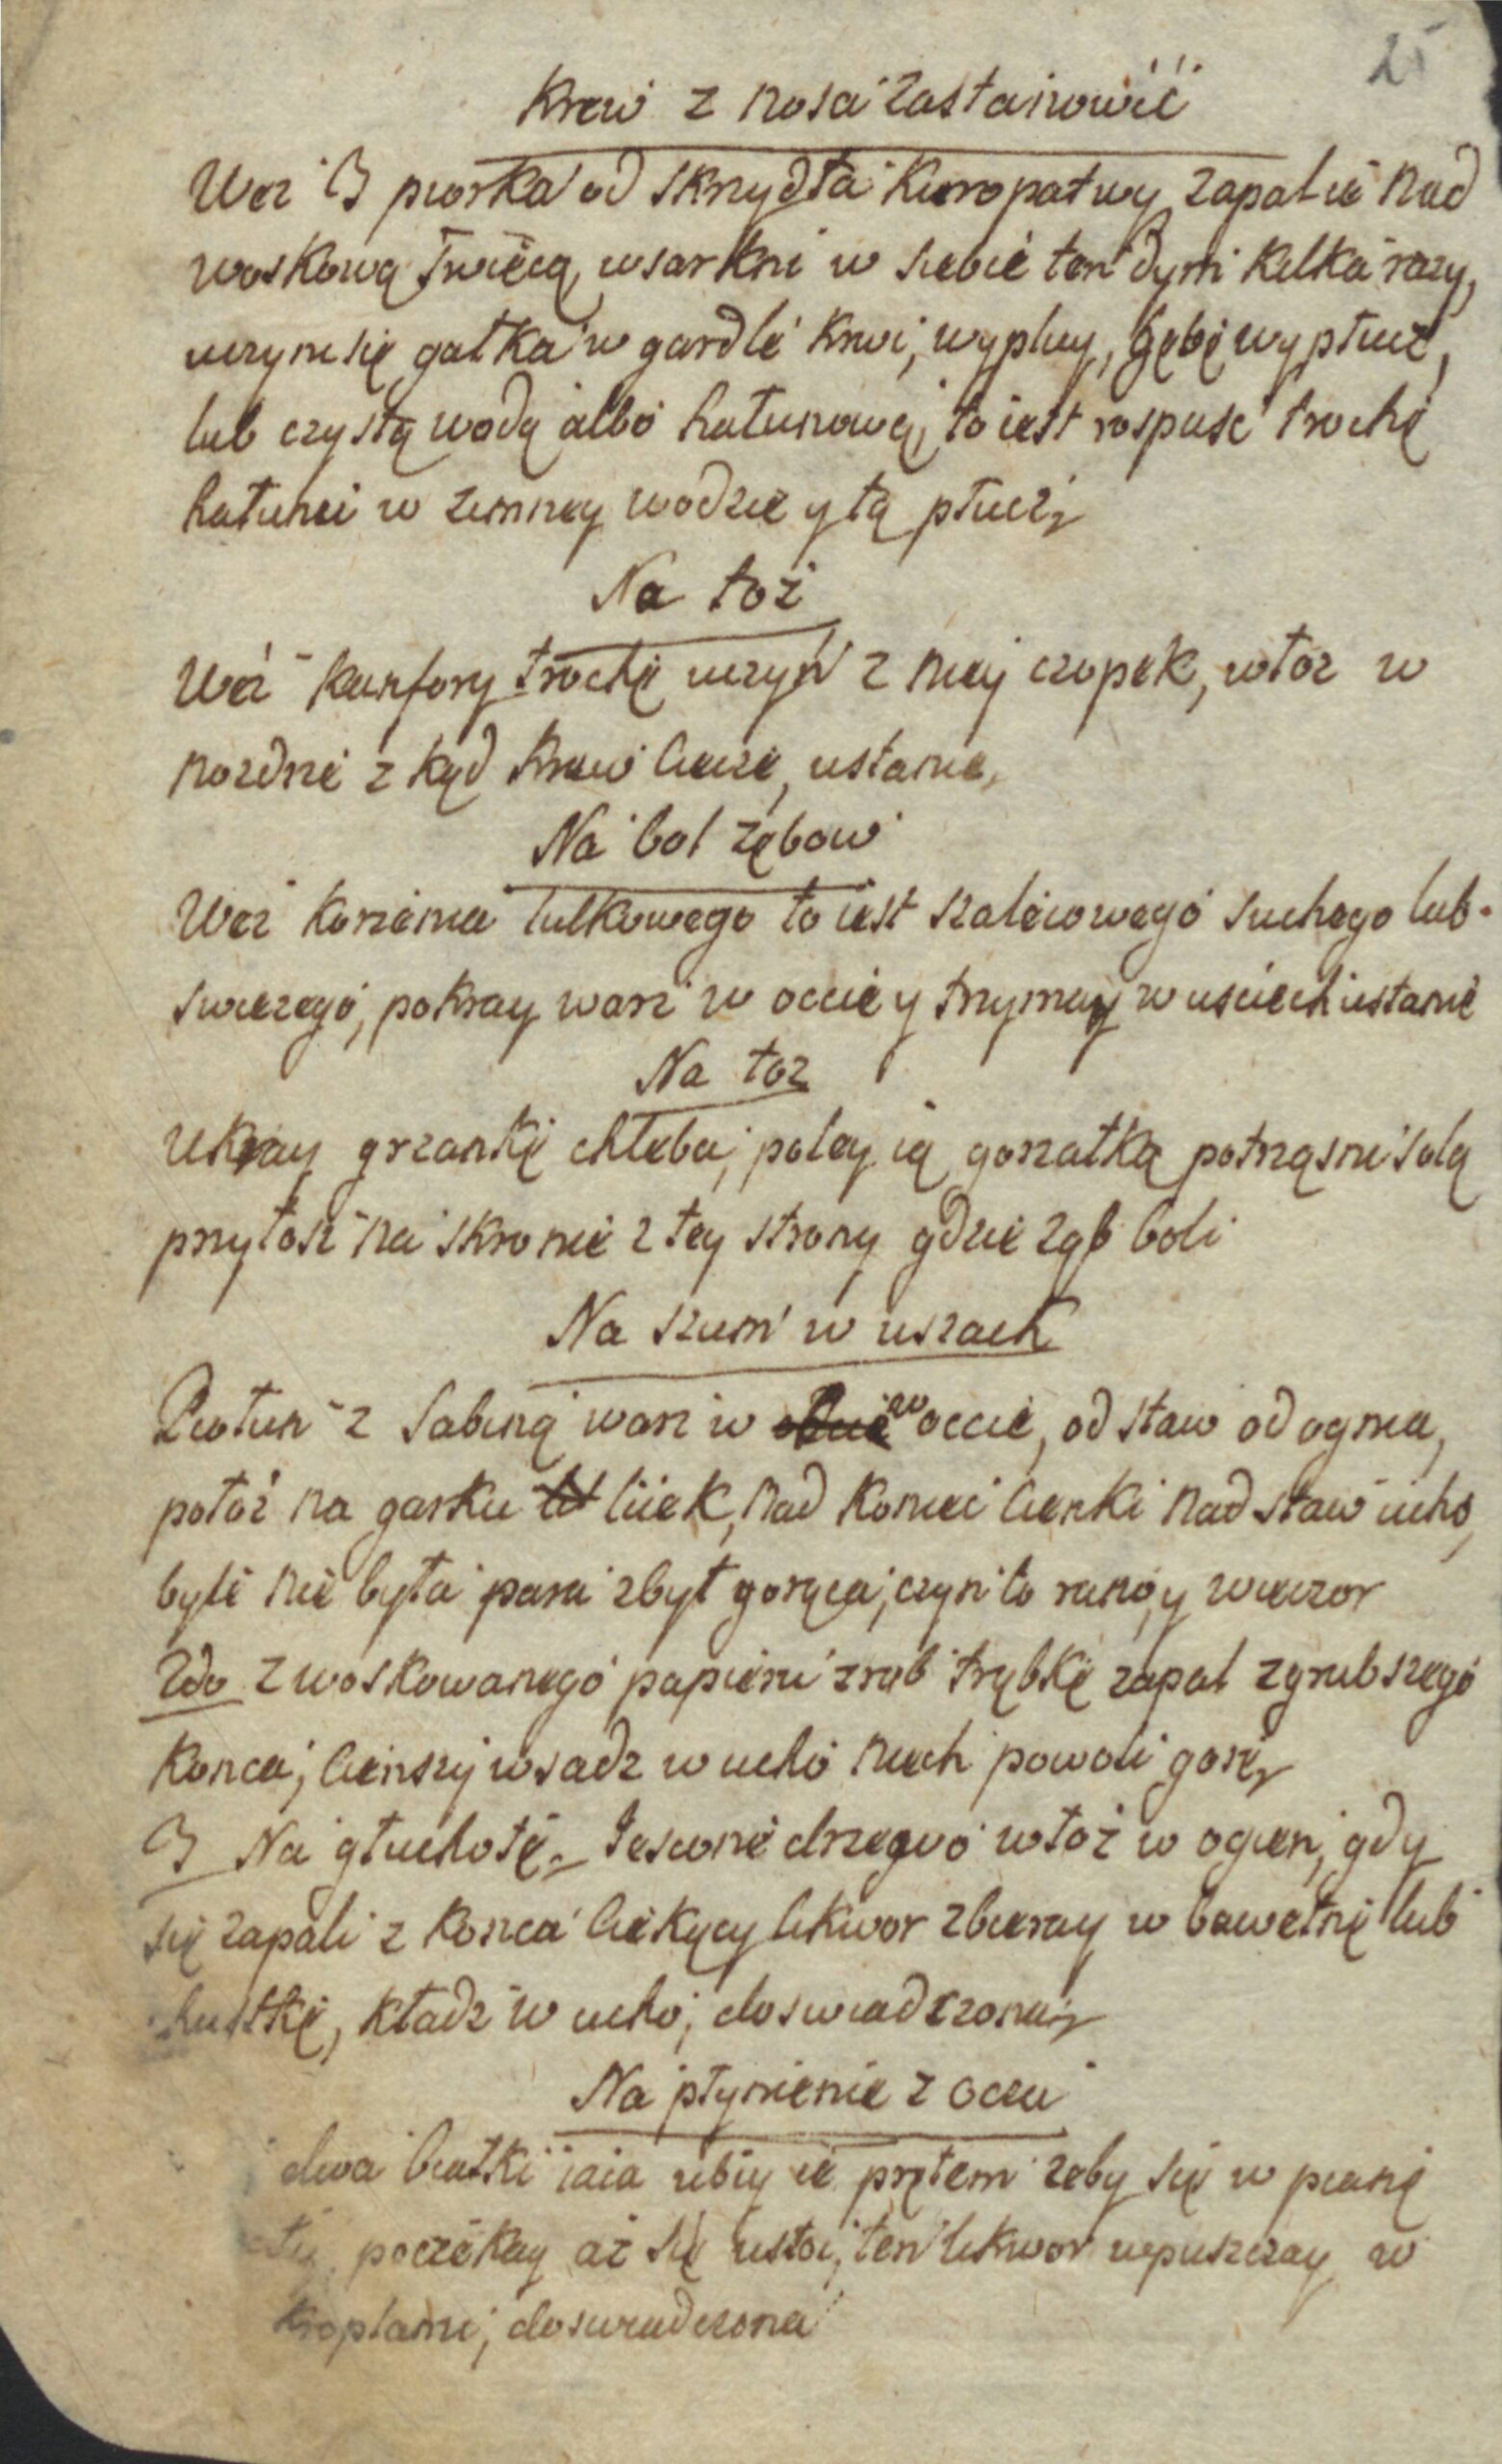 25
Krew z nosa zastanowić
Weź 3 piorka od skrzydła kuropatwy zapal ie nad
woskową swiecą, wsarkni w siebie ten dym kilka razy,
uczyni się gałka w gardle krwi, wypluy, gębę wypłucz,
lub czystą wodą albo hałunową, to iest rospuść trochę
hałunu w zimney wodzie y tą płucz,
Na toż
Weź kamfory trochę uczyń z niey czopek, włoż w
nozdrze z kąd krew ciecze, ustanie,
Na bol zębow
Weź korzenia lulkowego to iest szaleiowego suchego lub
swiezego, pokray warz w occie y trzymay w uściech ustanie
Na toz
Ukray grzankę chleba, poley ią gorzałką potrząśni solą
przyłoż na skronie z tey strony gdzie ząb boli
Na szum w uszach
Piołun z Sabiną warz w w occie, odstaw od ognia,
połoź na garku liiek, nad koniec cienki nadstaw ucho,
byle nie była para zbyt gorąca, czyń to rano, y wieczor
2do z woskowanego papieru zrob trąbkę zapal z grubszego
konca, cienszy wsadz w ucho niech powoli gore,
3 Na głuchotę. Jesione drzewo włoż w ogien, gdy
się zapali z konca ciekący likwor zbieray w bawełnę lub
chustkę, kładz w ucho, doswiadczona,
Na płynienie z oczu
dwa białki iaia ubiy ie prętem zeby się w pianę
poczekay aż się ustoi, ten likwor wpuszczay w
kroplami, doswiadczona